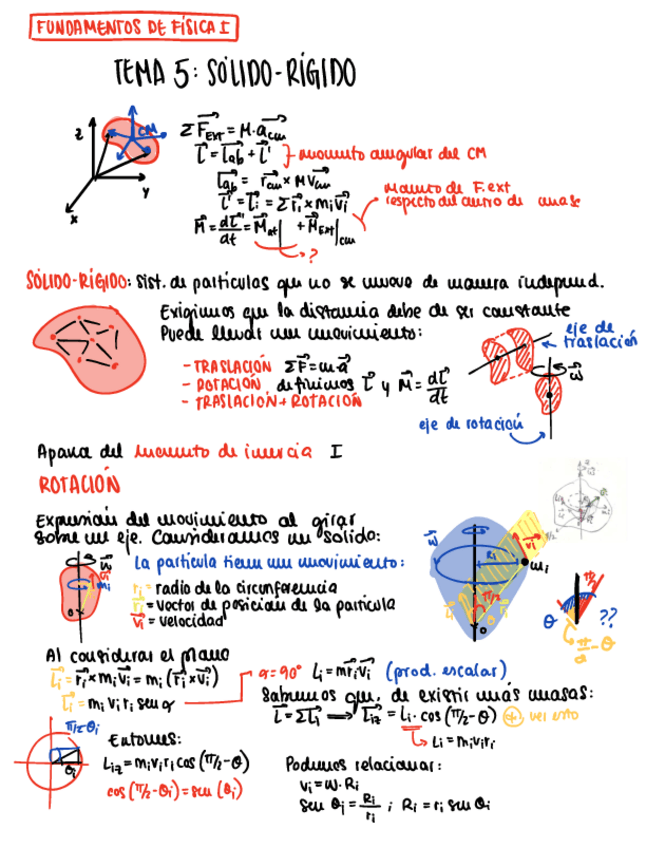 FUNDAMENTOS DE FÍSICA I
TEMA 5: SÓLIDO-RÍGIDO
z
CM
y
x
Σ F⃗ext = M·a⃗cm
L⃗ = L⃗ab + L⃗' } → momento angular del CM
L⃗ab = r⃗cm × M v⃗cm
L⃗' = L⃗i = Σ r⃗i × mi v⃗i
M⃗ = dL⃗/dt = M⃗int | + M⃗ext |cm
?
Momento de F. ext
respecto del centro de masas
SÓLIDO-RÍGIDO: Sist. de partículas que no se mueve de manera independ.
Exigimos que la distancia debe de ser constante
Puede llevar un movimiento:
- TRASLACIÓN Σ F⃗ = m·a⃗
- ROTACIÓN, definimos L⃗ y M⃗ = dL⃗/dt
- TRASLACIÓN + ROTACIÓN
eje de traslación
ω⃗
eje de rotación
Aparece del momento de inercia I
ROTACIÓN
Expresión del movimiento al girar
sobre un eje. Consideramos un sólido:
La partícula tiene un movimiento:
ri = radio de la circunferencia
r⃗i = vector de posición de la partícula
v⃗i = velocidad
ω⃗
v⃗i
mi
Ri
π/2
θ
o
π/2
θ
π/2 - θ
??
Al considerar el plano
L⃗i = r⃗i × mi v⃗i = mi (r⃗i × v⃗i)
L⃗i = mi vi ri sen α
α = 90° Li = m r⃗i v⃗i (prod. escalar)
Sabemos que, de existir más masas:
L⃗ = Σ L⃗i → L⃗iz = Li · cos (π/2 - θ) (*) ver esto
Li = mi vi ri
π/2 - θi
θi
Entonces:
Liz = mi vi ri cos (π/2 - θ)
cos (π/2 - θi) = sen (θi)
Podemos relacionar:
vi = ω · Ri
sen θi = Ri/ri ; Ri = ri sen θi